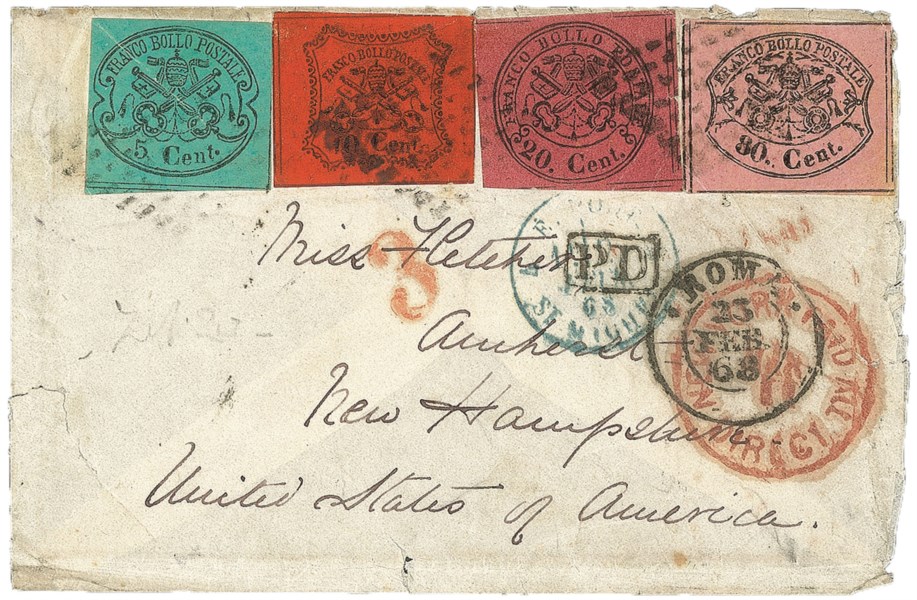 FRANCO BOLLO POSTALE
5 Cent.
FRANCO BOLLO POSTALE
10 Cent.
FRANCO BOLLO POSTALE
20 Cent.
FRANCO BOLLO POSTALE
80. Cent.
Miss Fletcher
3
PD
68
ROMA
23
FEB
68
Amherst
New Hampshire
United States of America.